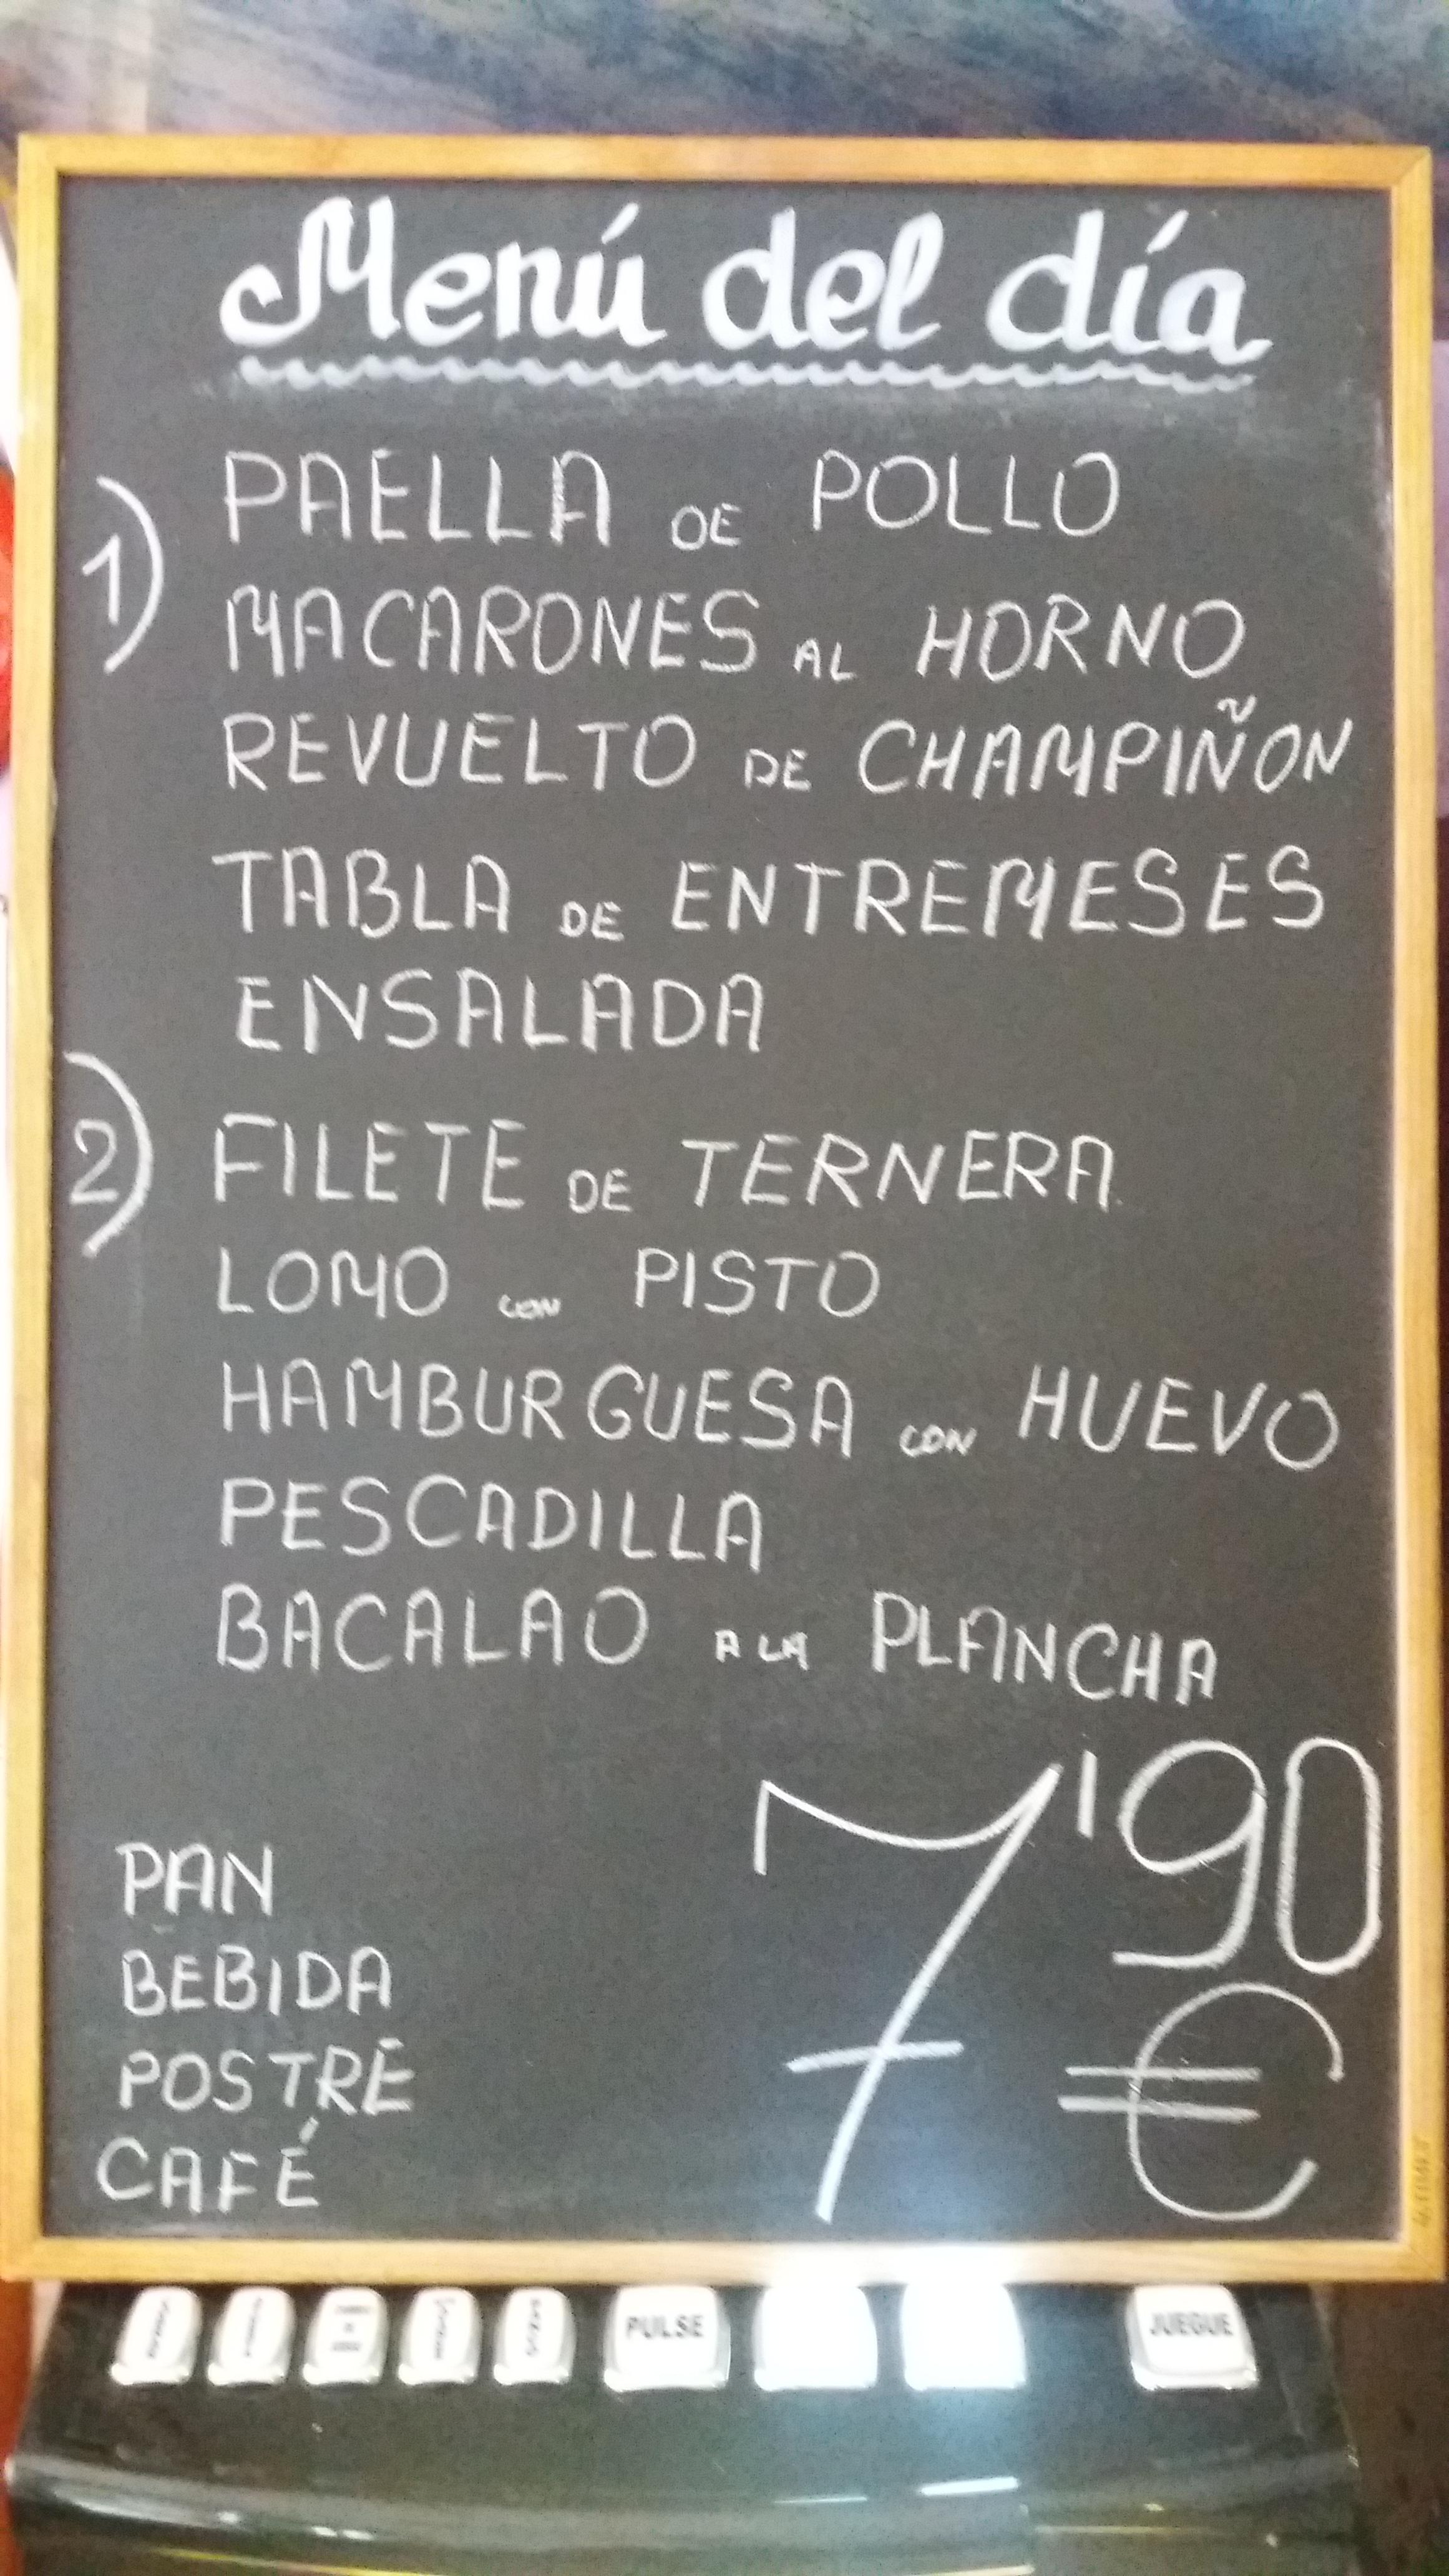 Menú del día
1) PAELLA DE POLLO
MACARONES AL HORNO
REVUELTO DE CHAMPIÑON
TABLA DE ENTREMESES
ENSALADA
2) FILETE DE TERNERA
LOMO CON PISTO
HAMBURGUESA CON HUEVO
PESCADILLA
BACALAO A LA PLANCHA
7'90
€
PAN
BEBIDA
POSTRE
CAFÉ
PULSE
JUEGUE